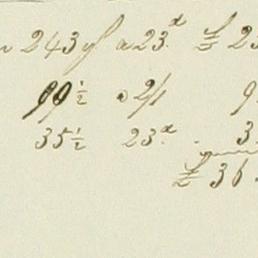 243 y a 23.d £ 23
99½ a 2/1 9
35½ 23.d . 3
£ 36